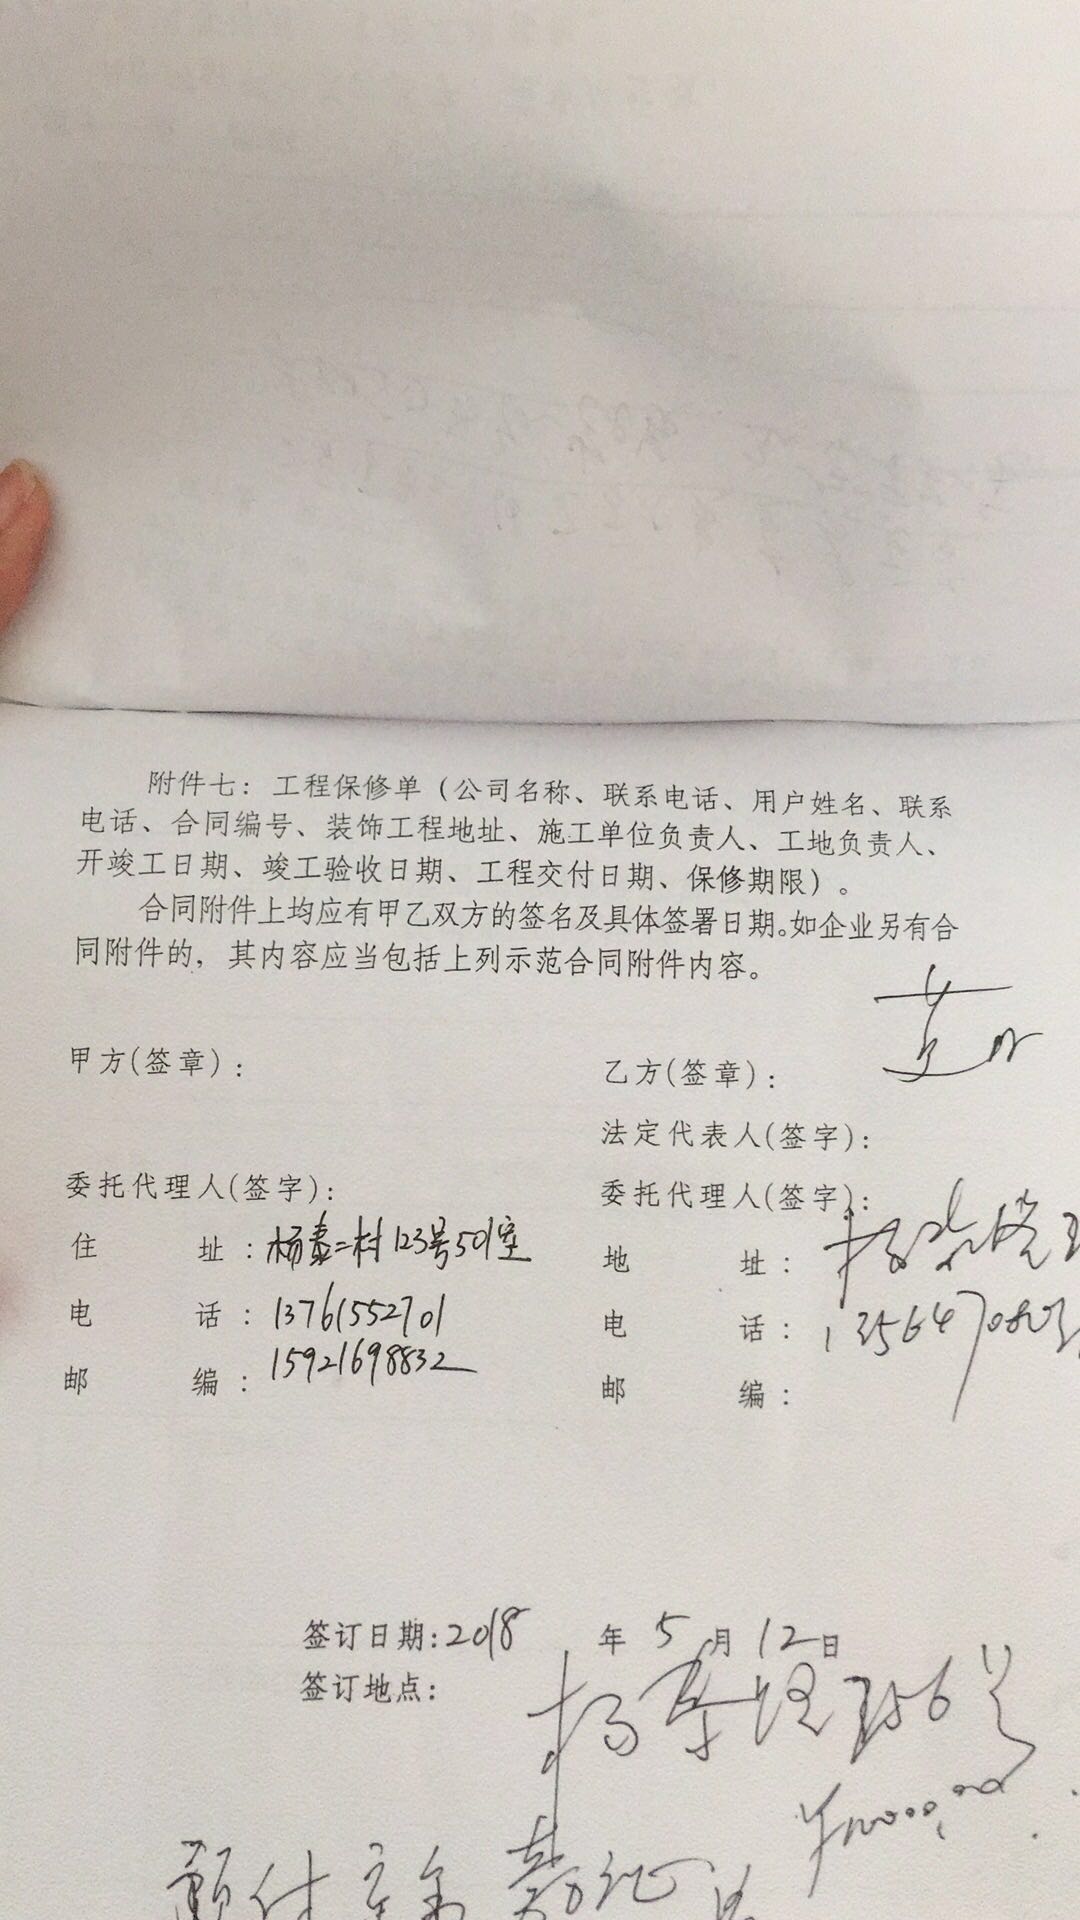 附件七：工程保修单（公司名称、联系电话、用户姓名、联系
电话、合同编号、装饰工程地址、施工单位负责人、工地负责人、
开竣工日期、竣工验收日期、工程交付日期、保修期限）。
合同附件上均应有甲乙双方的签名及具体签署日期。如企业另有合
同附件的，其内容应当包括上列示范合同附件内容。
甲方(签章)：
乙方(签章)：
法定代表人(签字)：
委托代理人(签字)：
委托代理人(签字)：
住 址：杨泰二村123号501室
地 址：
电 话：13761552701
15921698832
电 话：135647080
邮 编：
邮 编：
签订日期:2018 年 5 月 12日
签订地点: 杨泰路356号